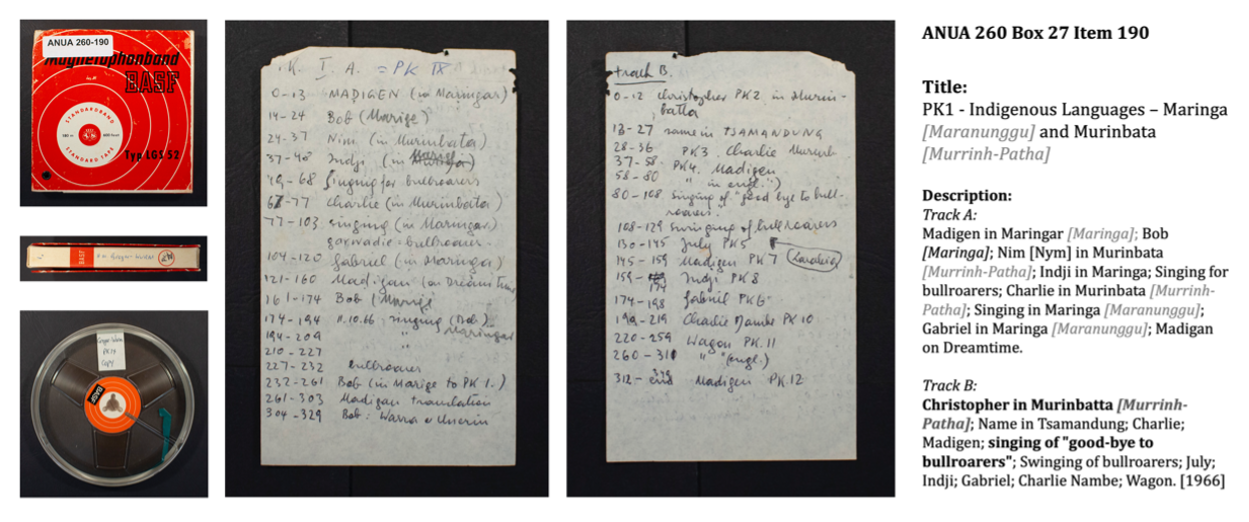 ANUA 260-190
Magnetophonband
BASF
STANDARDBAND
STANDARD TAPE
Typ LGS 52
BASF
Copy
BASF
K. I. A. = PK IX
0-13 MADIGEN (in Maringar)
14-24 Bob (Marige)
24-37 Nim (in Murinbata)
37-48 Indji (in
49-68 Singing for bullroarers
67-77 Charlie (in Murinbata)
77-103 singing (in Maringar)
= bullroarer -
104-120 Gabriel (in Maringa)
121-160 Madigan (on Dreamtime
161-174 Bob (
174-194 11.10.66, singing (Bob)
194-209 " Maringar
210-227
227-232 bullroarer
232-261 Bob (in Marige to PK 1.)
261-303 Madigan translation
304-329 Bob:
track B.
0-12 Christopher PK2 in Murin-
batta
13-27 same in TSAMANDUNG
28-36 PK3 Charlie Murinb.
37-58 PK4. Madigen
58-80 " in engl.")
80-108 singing of "good bye to bull-
roarers"
108-129 swinging of bullroarers
130-145 July PK5
145-159 Madigen PK 7
159-174 Indji PK 8
174-198 Gabriel PK6
199-219 Charlie Nambe PK 10
220-259 Wagon PK. 11
260-311 " "(engl.)
312- end Madigen PK.12
ANUA 260 Box 27 Item 190
Title:
PK1 - Indigenous Languages – Maringa
[Maranunggu] and Murinbata
[Murrinh-Patha]
Description:
Track A:
Madigen in Maringar [Maringa]; Bob
[Maringa]; Nim [Nym] in Murinbata
[Murrinh-Patha]; Indji in Maringa; Singing for
bullroarers; Charlie in Murinbata [Murrinh-
Patha]; Singing in Maringa [Maranunggu];
Gabriel in Maringa [Maranunggu]; Madigan
on Dreamtime.
Track B:
Christopher in Murinbatta [Murrinh-
Patha]; Name in Tsamandung; Charlie;
Madigen; singing of "good-bye to
bullroarers"; Swinging of bullroarers; July;
Indji; Gabriel; Charlie Nambe; Wagon. [1966]